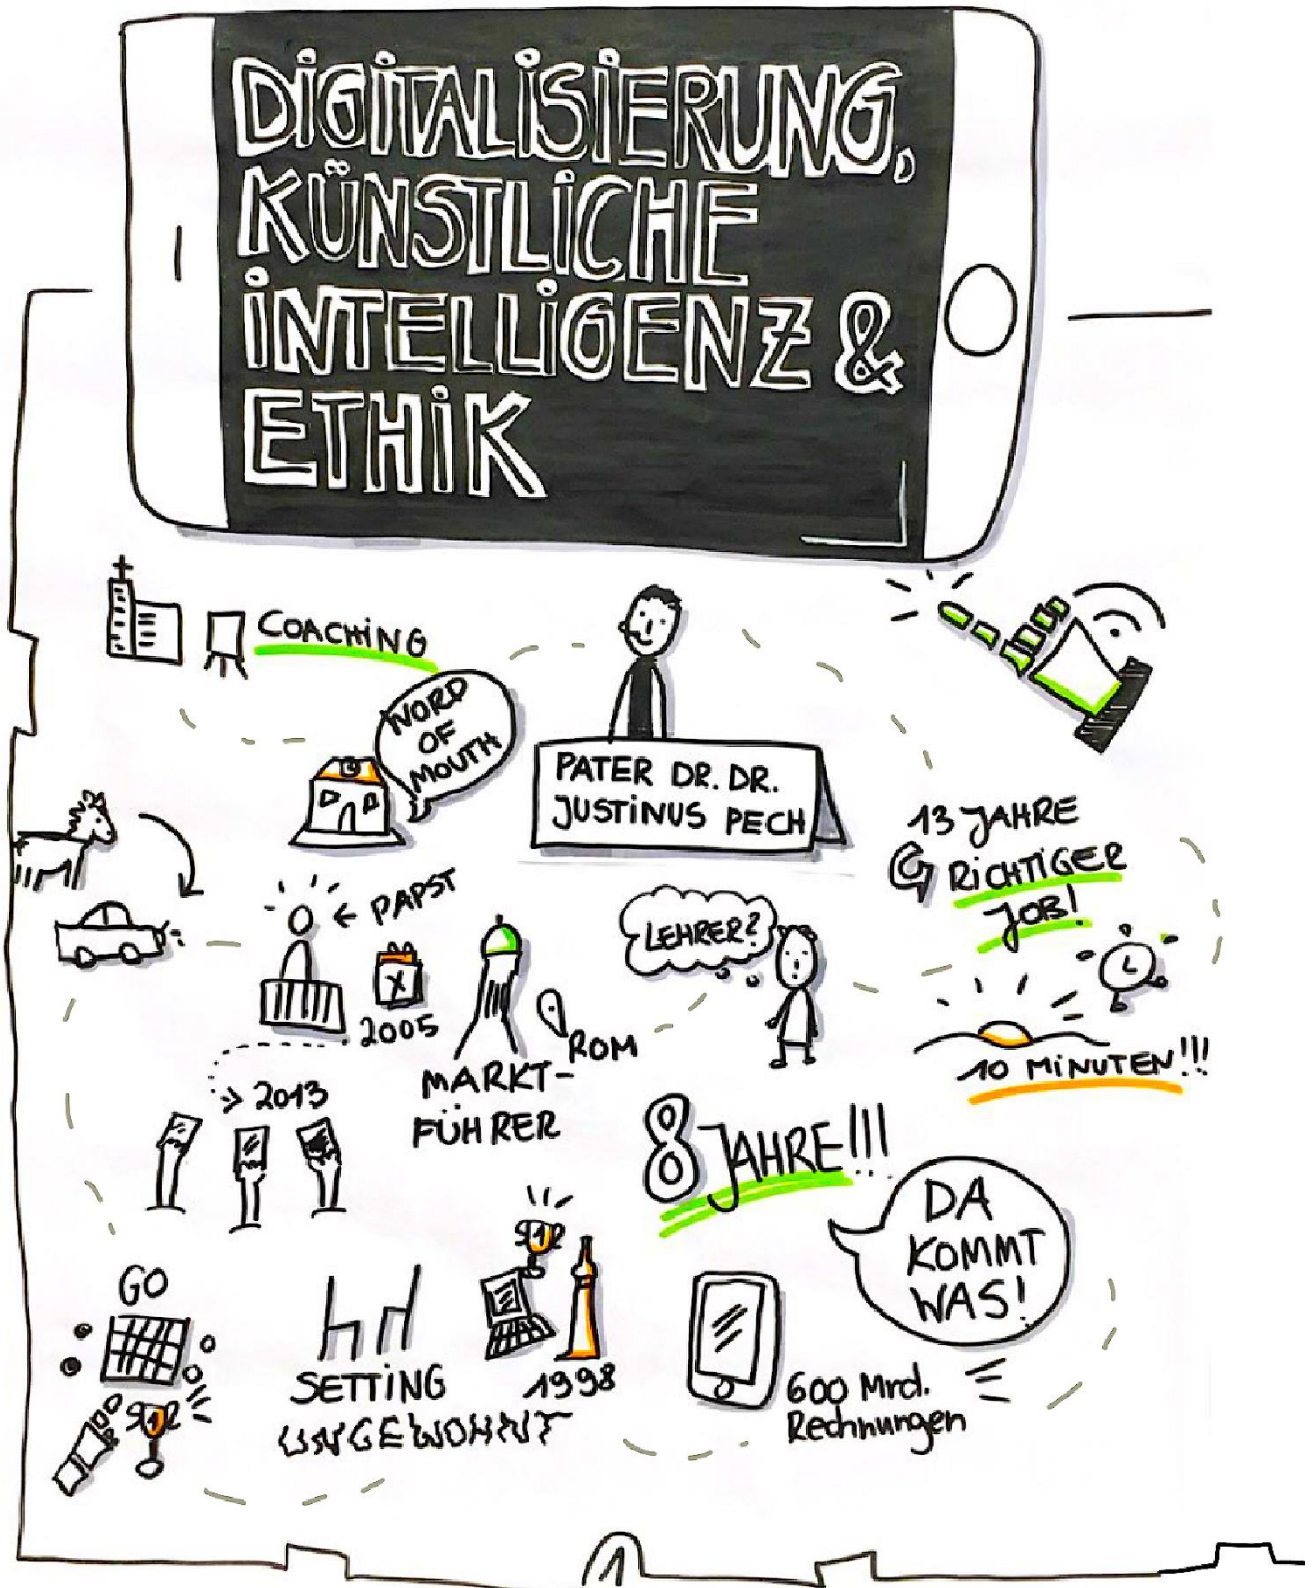 DIGITALISIERUNG,
KÜNSTLICHE
INTELLIGENZ &
ETHIK
COACHING
WORD
OF
MOUTH
PATER DR. DR.
JUSTINUS PECH
13 JAHRE
RICHTIGER
JOB!
← PAPST
LEHRER?
X
2005
ROM
10 MINUTEN!!!
MARKT-
FÜHRER
2013
8 JAHRE!!!
DA
KOMMT
WAS!
GO
1
1
SETTING
UNGEWOHNT
1998
600 Mrd.
Rechnungen
1